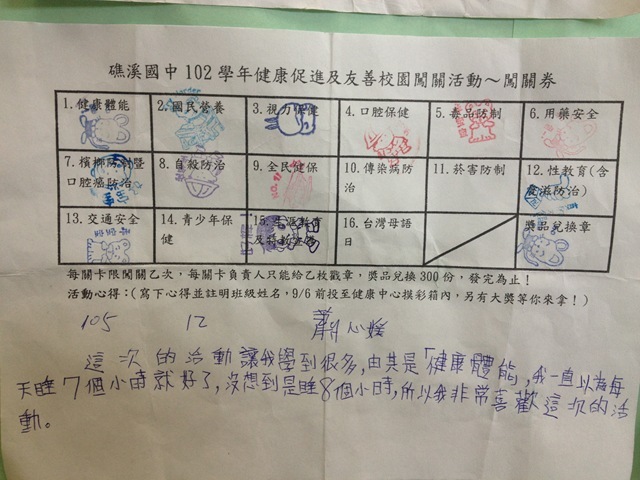 礁溪國中 102 學年健康促進及友善校園闖關活動～闖關券
1.健康體能 2.國民營養 3.視力保健 4.口腔保健 5.毒品防制 6.用藥安全
7.檳榔防制暨口腔癌防治 8.自殺防治 9.全民健保 10.傳染病防治 11.菸害防制 12.性教育(含愛滋防治)
13.交通安全 14.青少年保健 15. 16.台灣母語日 獎品兌換章
每關卡限闖關乙次，每關卡負責人只能給乙枚戳章，獎品兌換 300 份，發完為止！
活動心得：(寫下心得並註明班級姓名，9/6 前投至健康中心摸彩箱內，另有大獎等你來拿！)
105 12 心媛
這次的活動讓我學到很多,由其是「健康體能,我一直以為每
天睡7個小時就好了,沒想到是睡8個小時,所以我非常喜歡這次的活
動。